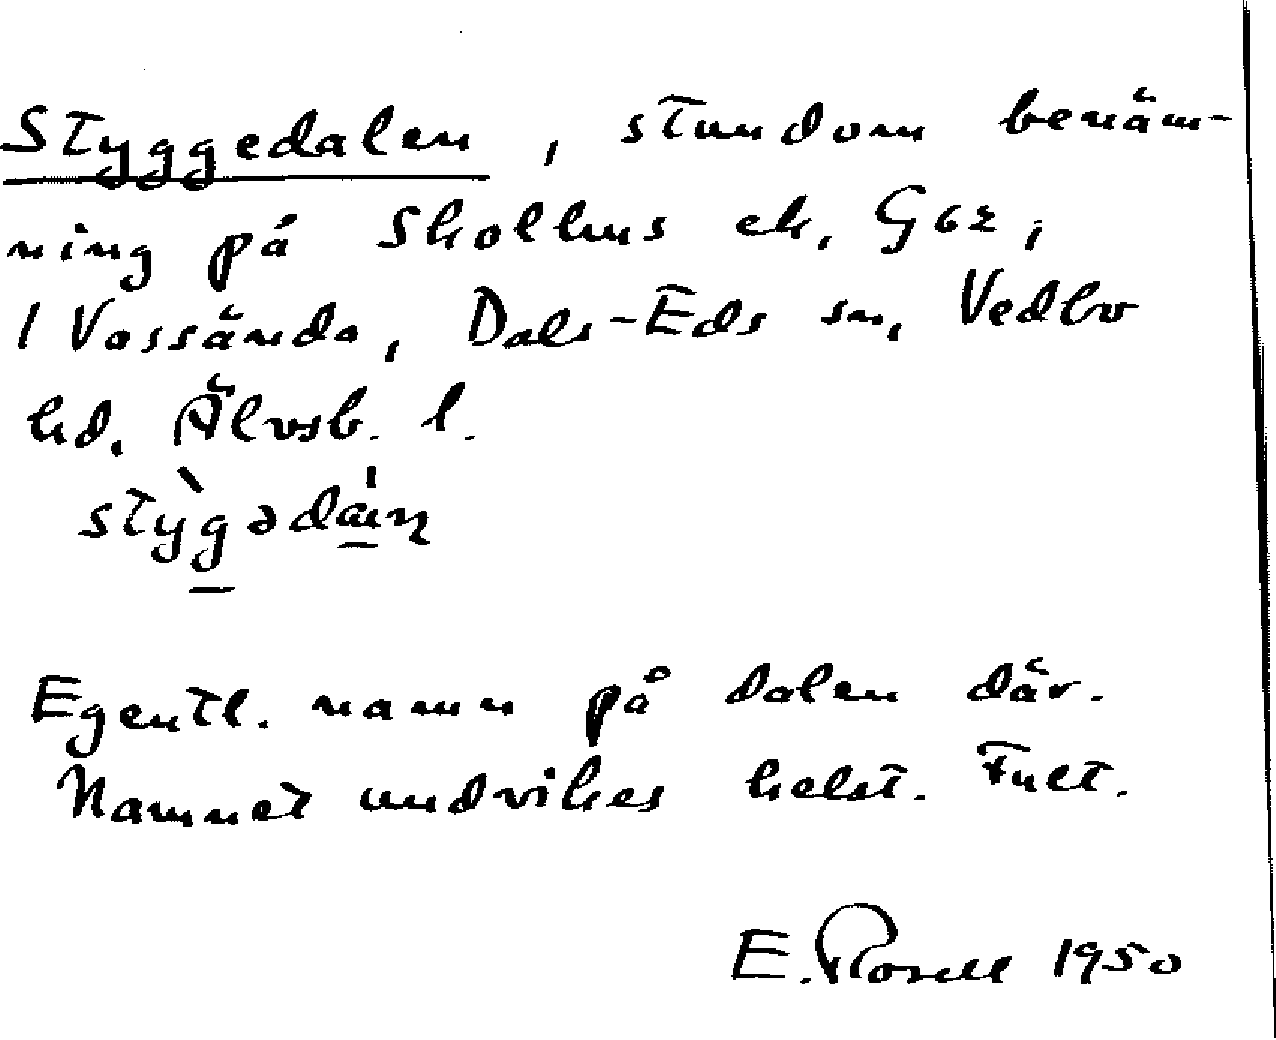 Styggedalen, stundom benäm-
ning på Skolhus ek, G62,
1 Vassända, Dals-Eds sn, Vedbo
hd. Älvsb. l.
Egentl. namn på dalen där.
Namnet undvikes helst. Fult.
E. Rosell 1950